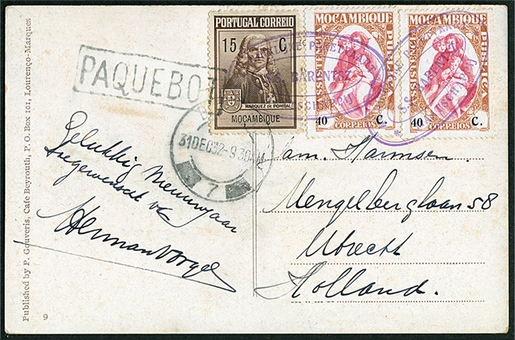 PAQUEBOT
PORTUGAL CORREIO
15 C
MARQUEZ DE POMBAL
MOÇAMBIQUE
MOÇAMBIQUE
40 C.
CORREIOS
MOÇAMBIQUE
40 C.
CORREIOS
31DEC32-9 30
7
Gelukkig Nieuwjaar
toegewenscht v/d
Herman
Fam. Harmsen
Mengelbergлaan 58
Utrecht
Holland.
Published by P. Gouveris, Cafe Beyrouth, P. O. Box 101, Lourenço-Marques
9